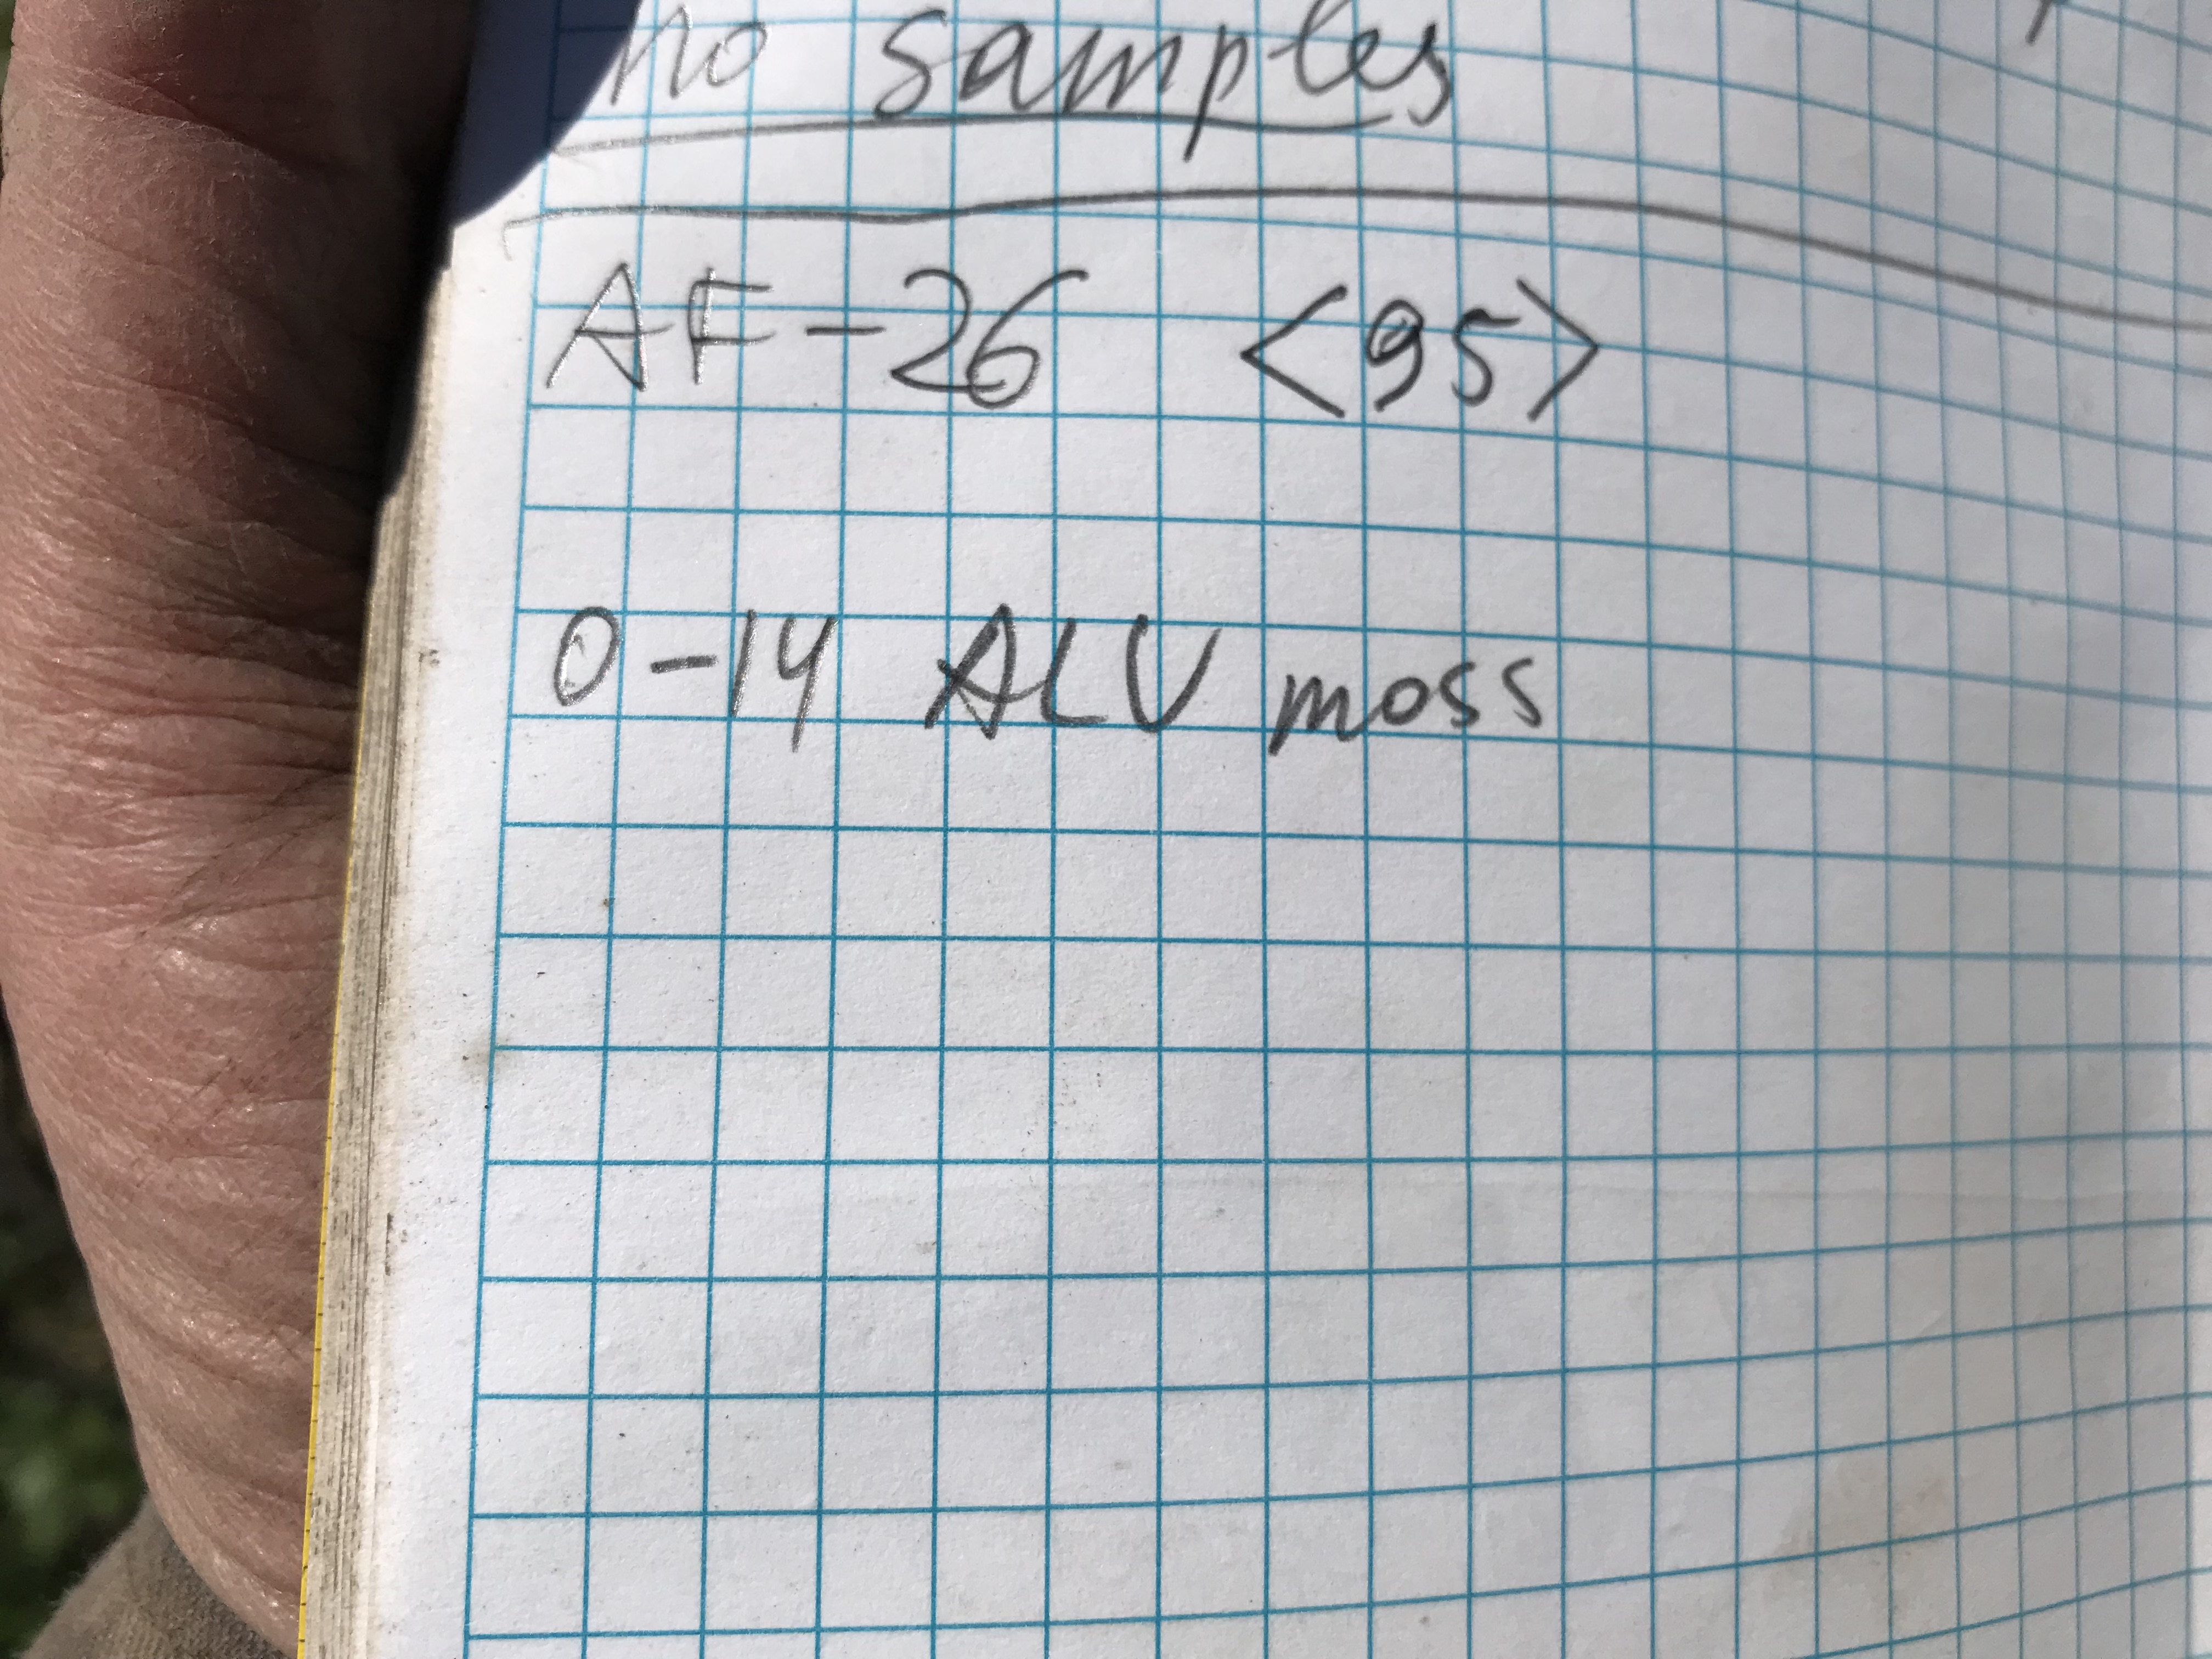 no samples
AF-26 <95>
0-14 ALV moss